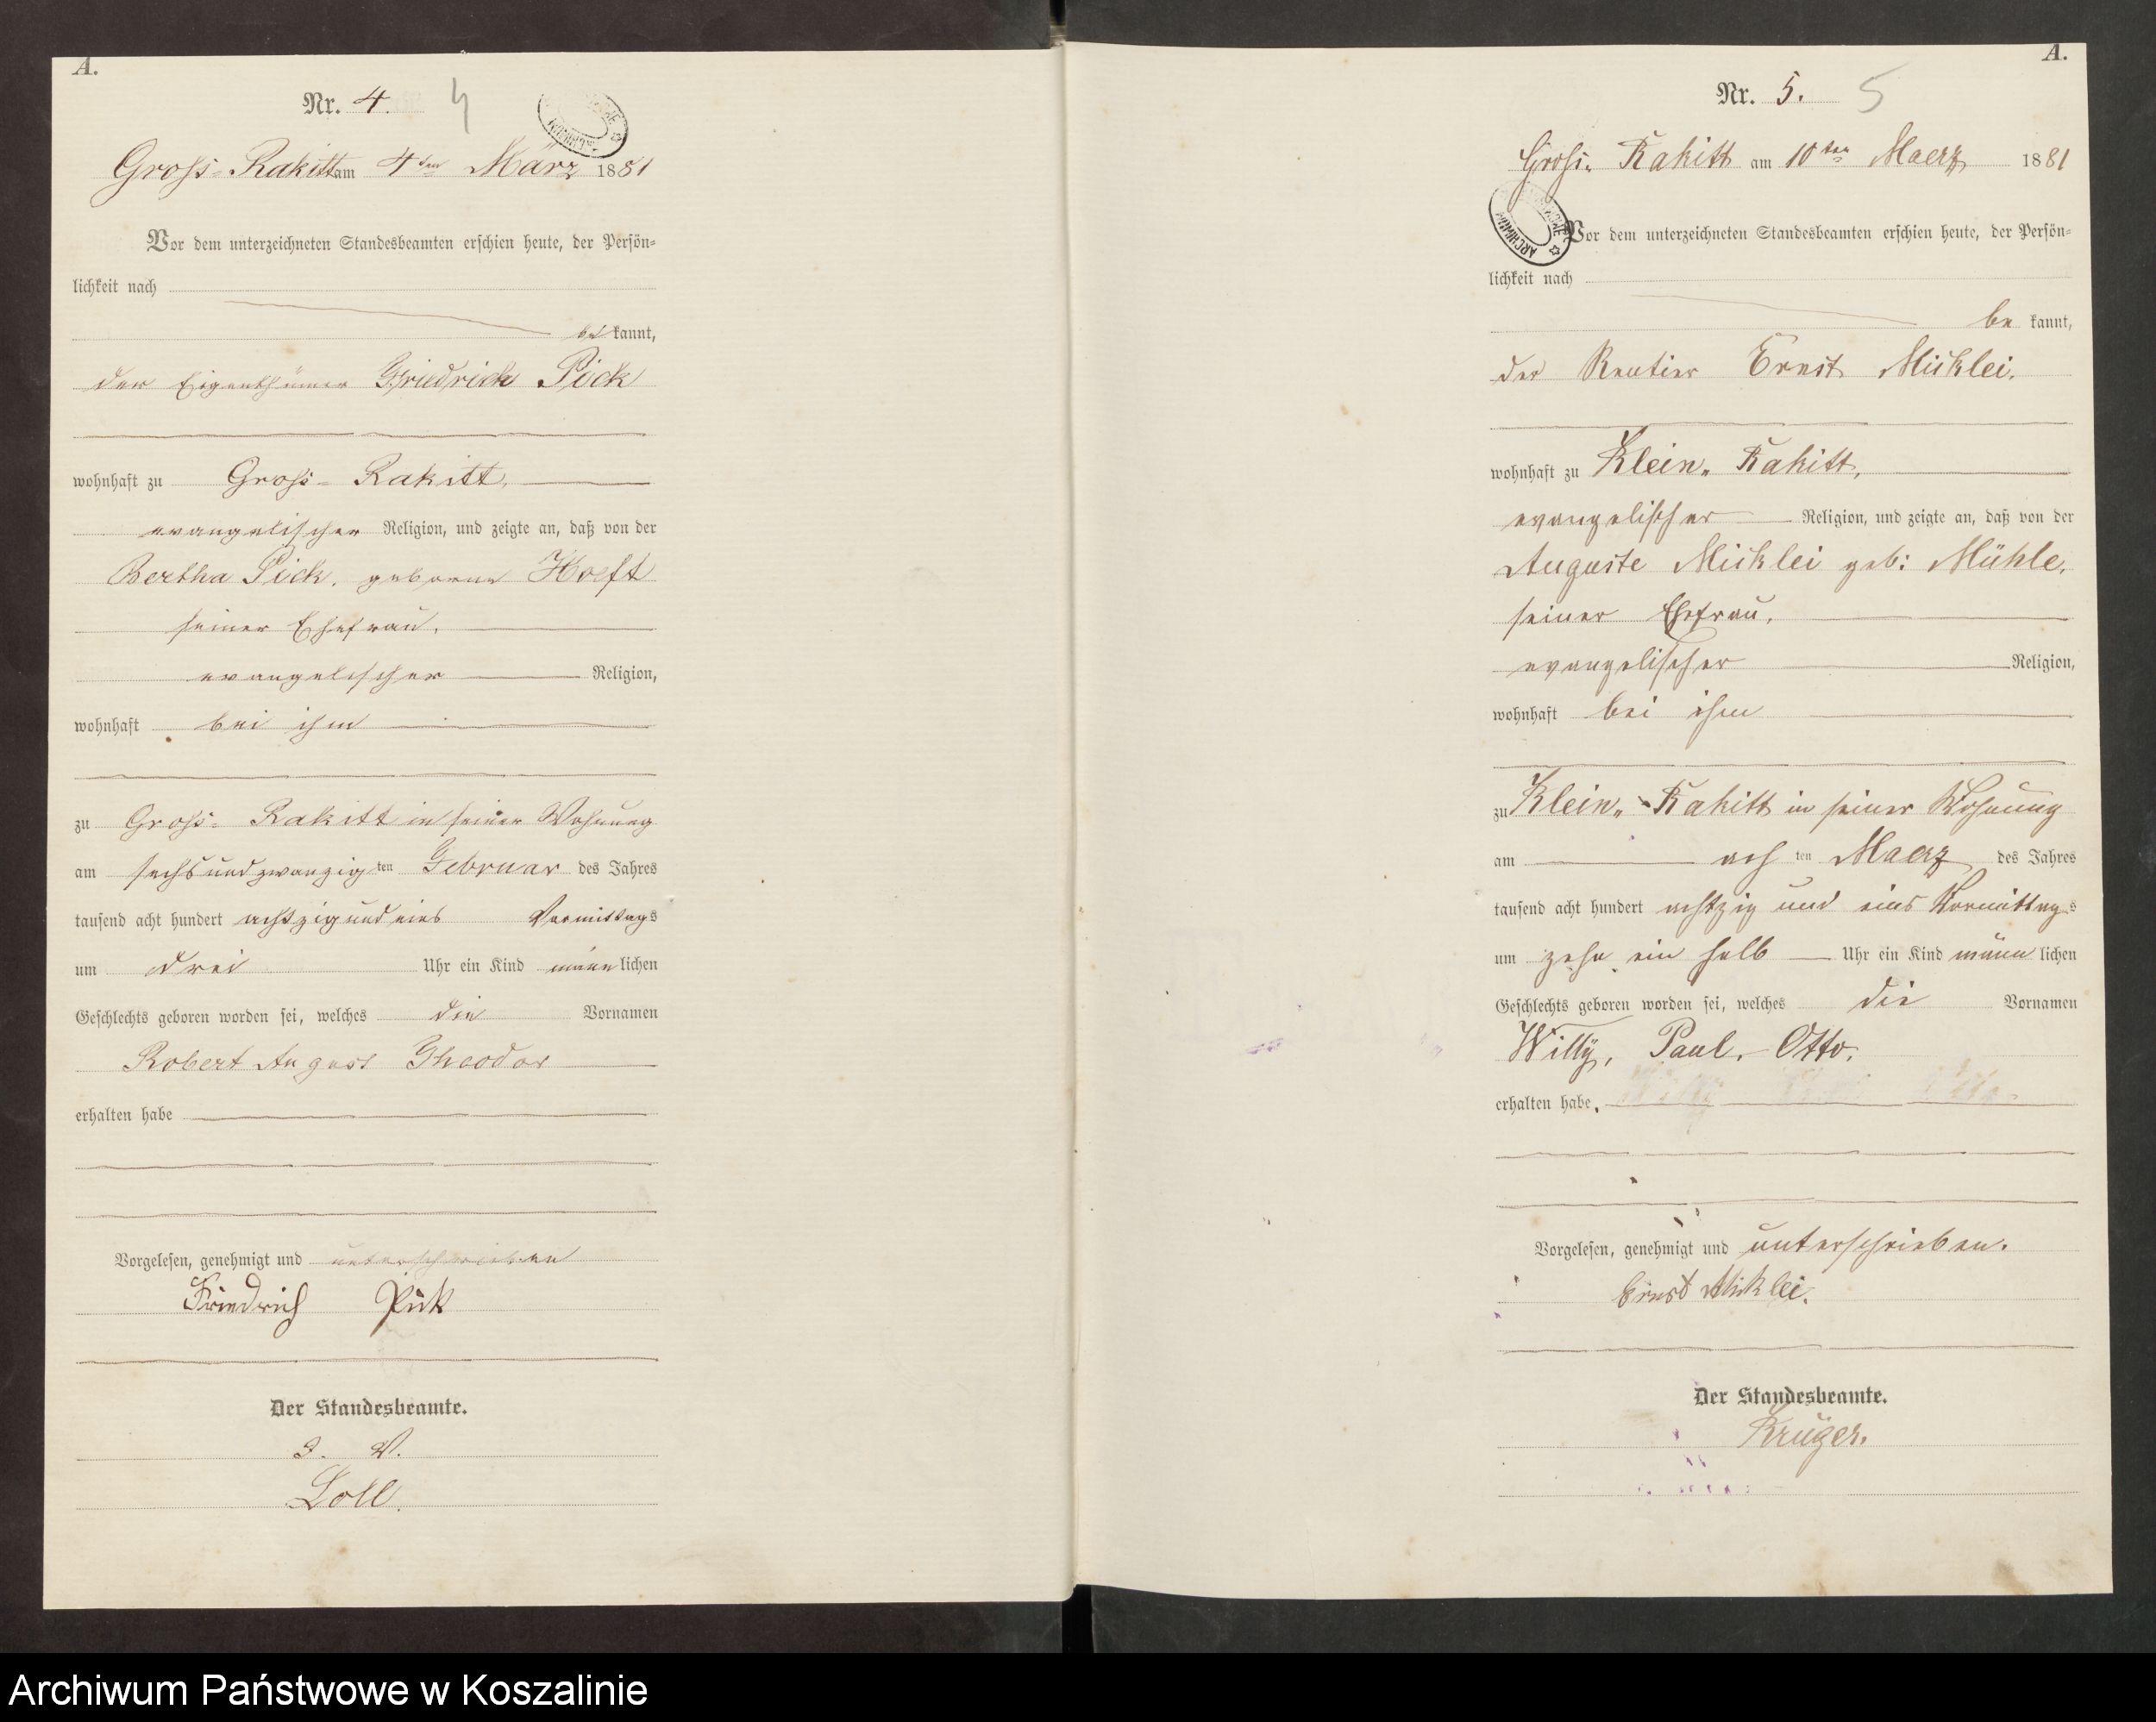 A.
Nr. 4. 4
Gross-Rakitt am 4ten März 1881
Vor dem unterzeichneten Standesbeamten erschien heute, der Persön=
lichkeit nach
be kannt,
der Eigenthümer Friedrich Pick
wohnhaft zu Gross-Rakitt,
evangelischer Religion, und zeigte an, daß von der
Bertha Pick, geborene Hoeft
seiner Ehefrau,
evangelischer Religion,
wohnhaft bei ihm
zu Gross-Rakitt in seiner Wohnung
am sechsundzwanzig ten Februar des Jahres
tausend acht hundert achtzig und eins Vormittags
um drei Uhr ein Kind männlichen
Geschlechts geboren worden sei, welches die Vornamen
Robert August Theodor
erhalten habe
Vorgelesen, genehmigt und unterschrieben
Friedrich Pick
Der Standesbeamte.
I. V.
Loll.
A.
Nr. 5. 5
Gross-Rakitt am 10ten Maerz 1881
ARCHIWUM
Vor dem unterzeichneten Standesbeamten erschien heute, der Persön=
lichkeit nach
be kannt,
der Rentier Ernst Micklei.
wohnhaft zu Klein-Rakitt,
evangelischer Religion, und zeigte an, daß von der
Auguste Micklei geb: Mühle,
seiner Ehefrau,
evangelischer Religion,
wohnhaft bei ihm
zu Klein-Rakitt in seiner Wohnung
am ach ten Maerz des Jahres
tausend acht hundert achtzig und eins Vormittags
um zehn ein halb Uhr ein Kind männlichen
Geschlechts geboren worden sei, welches die Vornamen
Willy, Paul, Otto.
erhalten habe.
Vorgelesen, genehmigt und unterschrieben.
Ernst Micklei.
Der Standesbeamte.
Krüger.
Archiwum Państwowe w Koszalinie